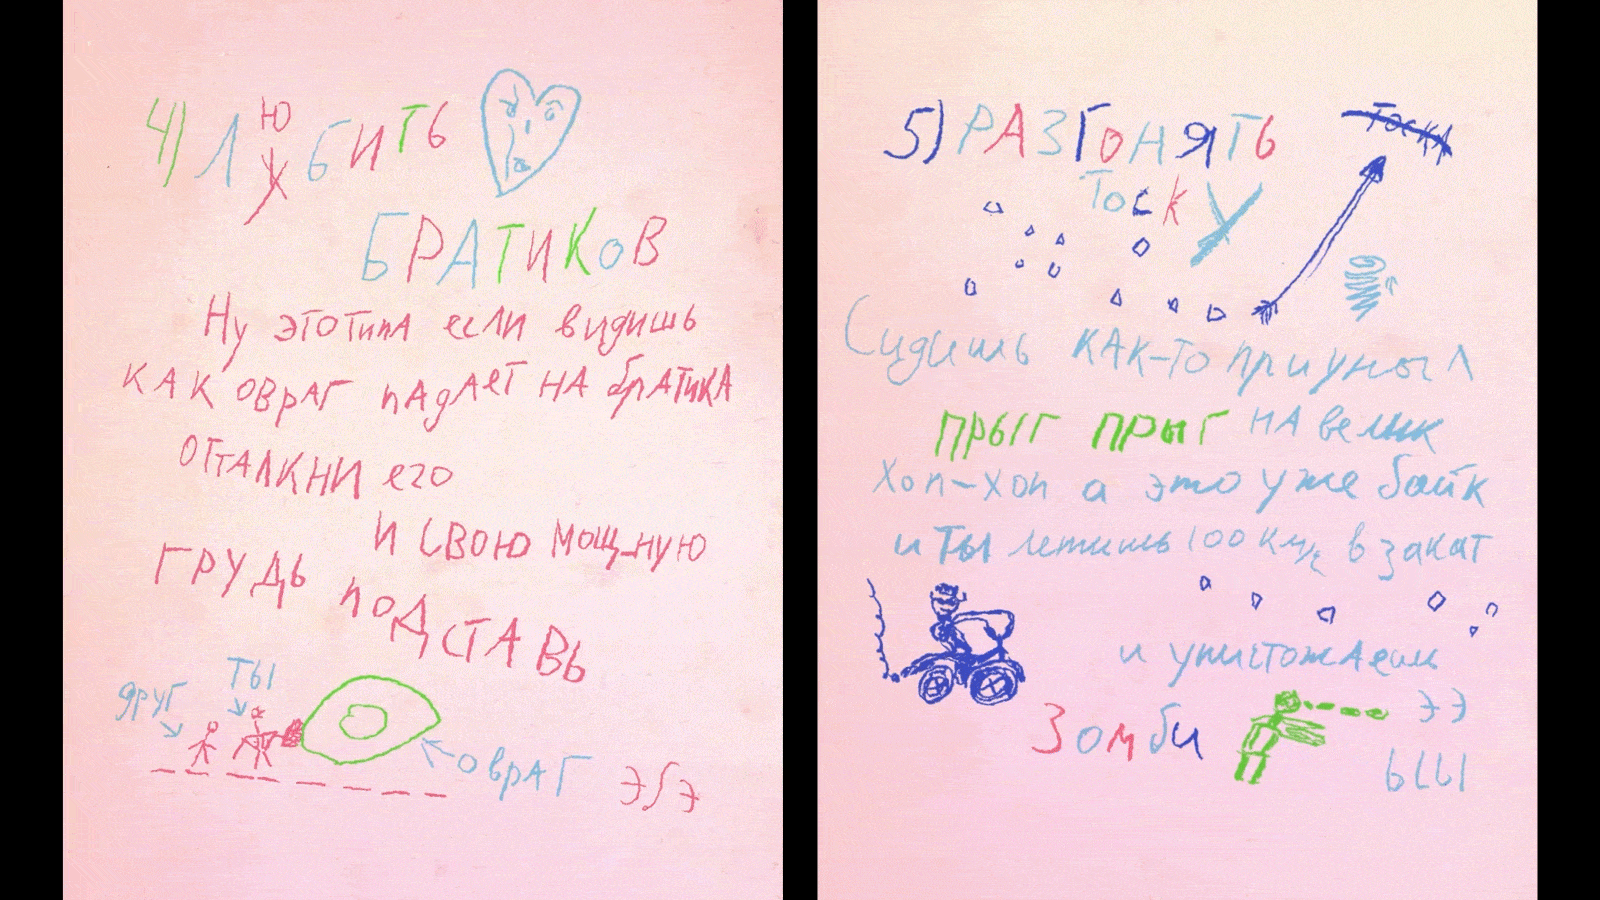 4) ЛЮБИТЬ
БРАТИКОВ
Ну этотипа если видишь
как овраг падает на братика
отталкни его
и свою мощную
грудь подставь
друг
ты
овраг
5) РАЗГОНЯТЬ
ТОСКУ
тоска
Сидишь как-то приуныл
прыг прыг на велик
хоп-хоп а это уже байк
и ты летишь 100 км/с в закат
и уничтожаешь
Зомби
ээ
ыы